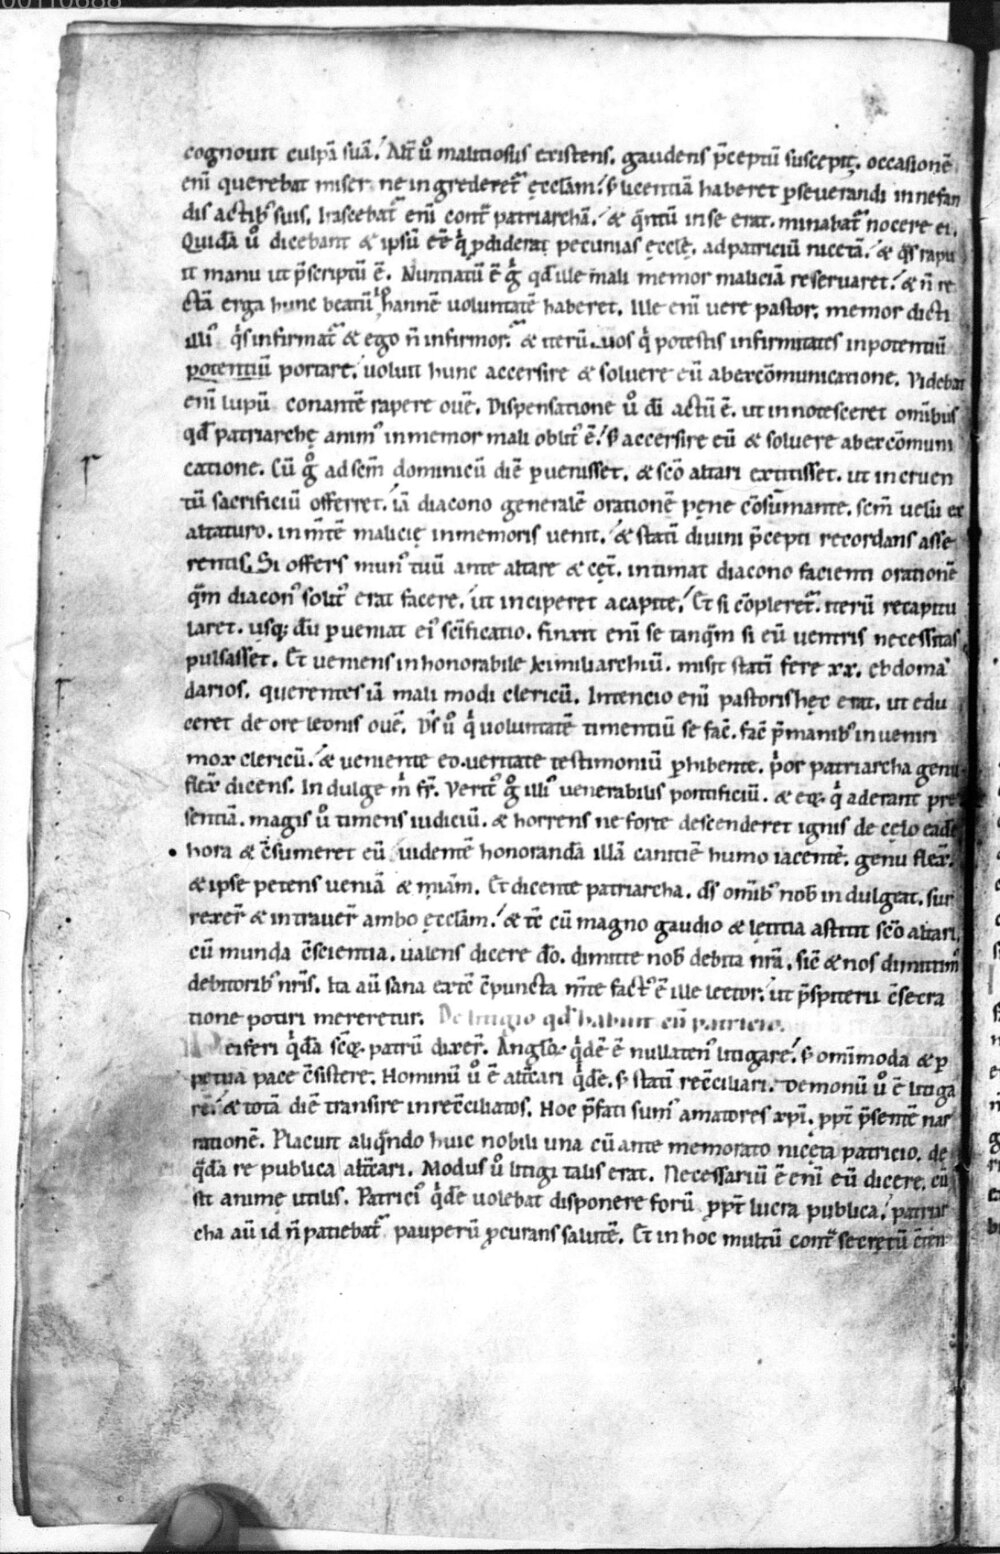 cognouit culpā suā. Alt̄ ů malitiosus existens. gaudens p̄ceptū suscepit. occasionē
enī querebat miser ne ingrederet᷑ ęccłam. s; licentiā haberet ꝑseuerandi in nefan
dis actib᷒ suis. Irascebat᷑ enī cont᷑ patriarchā. & q̄ntū in se erat. minabat᷑ nocere ei.
Quidā ů dicebant & ipsū eē qͥ ꝑdiderat pecunias ęcclę. ad patriciū nicetā. & q̄s rapu
it manu ut p̄scriptū ē. Nuntiatū ē gͥ qđ ille mali memor maliciā reseruaret. & n̄ re
ctā erga hunc beatū Iohannē uoluntatē haberet. Ille enī uere pastor. memor dicti
illi᷒ qͥs infirmat᷑ & ego n̄ infirmor. & iterū. uos qͥ potestis infirmitates inpotentiū
potentiū portare. uoluit hunc accersire & soluere eū ab excōmunicatione. Videbat
enī lupū conantē rapere ouē. Dispensatione ů dī actū ē. ut innotesceret omībus
qđ patriarchę anim᷒ inmemor mali oblit᷒ ē. s; accersire eū & soluere ab excōmuni
catione. Cū g̊ ad sc̄m dominicū diē ꝑuenisset. & sc̄o altari extitisset. ut incruen
tū sacrificiū offerret. iā diacono generalē orationē pene cōsūmante. sc̄m uelū ex
altaturo. in m̄tē malicię inmemoris uenit. & statī diuini p̄cepti recordans asse
rentis. Si offers mun᷒ tuū ante altare & cęt̄. intimat diacono facienti orationē
q̄m diacon᷒ solit᷒ erat facere. ut inciperet a capite. Et si cōpleret᷑. iterū recapitu
laret. usq; dū ꝑueniat ei᷒ sc̄ificatio. finxit enī se tanq̄m si eū uentris necessitas
pulsasset. Et ueniens in honorabile kimiliarchiū. misit statī fere xx. ebdoma
darios. querentes iā mali modi clericū. Intencio enī pastoris hęc erat. ut edu
ceret de ore leonis ouē. D̄s ů qͥ uoluntatē timentiū se fac̄. fac̄ p̄manib᷒ inueniri
mox clericū. & ueniente eo. ueritate testimoniū ꝑhibente. pͥor patriarcha genu
flex᷑ dicens. Indulge m̄ fr̄. Verit᷒ g̊ illi᷒ uenerabilis pontificiū. & eoꝝ qͥ aderant pre
sentiā. magis ů timens iudiciū. & horrens ne forte descenderet ignis de cęlo eadē
hora & c̄sumeret eū uidentē honorandā illā canitiē humo iacentē. genu flex᷑.
& ipse petens ueniā & m̄iam. Et dicente patriarcha. ds̄ omīb᷒ nob̄ indulgeat. sur
rexer̄ & intrauer̄ ambo ęccłam. & tc̄ cū magno gaudio & lętitia astitit sc̄o altari.
cū munda c̄scientia. ualens dicere dō. dimitte nob̄ debita nr̄a. sic̄ & nos dimittim᷒
debitorib᷒ nr̄is. Ita aū sana extē c̄puncta m̄te fact᷒ ē ille lector. ut p̄sbiteriī c̄secra
tione potiri mereretur. De litigio qđ habuit cū patricio.
eiferi qͥdā scōꝝ patrū dixer̄. Anglōꝝ qͥdē ē nullaten᷒ litigare. s; omīmoda & ꝑ
petua pace c̄sistere. Hominū ů ē alt̄cari qͥdē. s; statī rec̄ciliari. Demonū ů ē litiga
re. & totā diē transire in rec̄ciliatos. Hoc p̄fati sum᷒ amatores xp̄i. ppt̄ p̄sentē nar
rationē. Placuit aliqn̄do huic nobili una cū ante memorato nicęta patricio. de
qͥdā re publica alt̄cari. Modus ů litigi talis erat. Necessariū ē enī eū dicere. cū
sit animę utilis. Patrici᷒ qͥdē uolebat disponere forū ꝓpt̄ lucra publica. patriar
cha aū id n̄ patiebat᷑ pauperū ꝓcurans salutē. Et in hoc multū cont᷑ secretū c̄ten